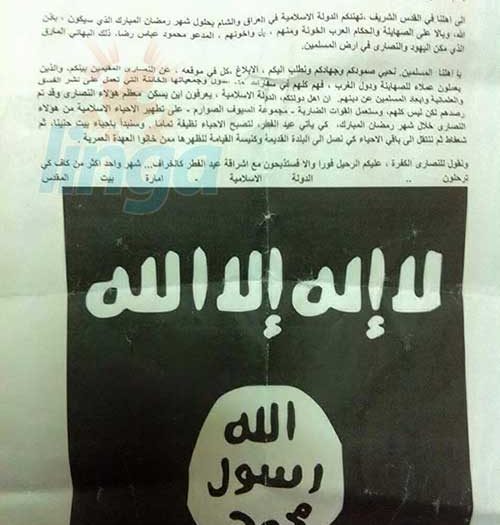 الى اهلنا في القدس الشريف، تهنئكم الدولة الاسلامية في العراق والشام بحلول شهر رمضان المبارك الذي سيكون ، باذن
الله، وبالا على الصهاينة والحكام العرب الخونة ومنهم ، بل واخونهم ، المدعو محمود عباس رضا. ذلك البهائي المارق
الذي مكن اليهود والنصارى في ارض المسلمين.
يا اهلنا المسلمين. نحيي صمودكم وجهادكم ونطلب اليكم ، الابلاغ ،كل في موقعه ، عن النصارى المقيمين بينكم، والذين
يعملون عملاء للصهاينة ودول الغرب ، فهم كلهم في وجمعياتها الخائنة التي تعمل على نشر الفسق
والعلمانية وابعاد المسلمين عن دينهم. ان اهل دولتكم، الدولة الاسلامية ، يعرفون اين يسكن معظم هؤلاء النصارى وقد تم
رصدهم لكن ليس كلهم، وستعمل القوات الضاربة - مجموعة السيوف الصوارم - على تطهير الاحياء الاسلامية من هؤلاء
النصارى خلال شهر رمضان المبارك. كي يأتي عيد الفطر، لتصبح الاحياء نظيفة تماما. وسنبدأ باحياء بيت حنينا، ثم
شعفاط ثم ننتقل الى باقي الاحياء كي نصل الى البلدة القديمة وكنيسة القيامة لنطهرها ممن خانوا العهدة العمرية
ونقول للنصارى الكفرة ، عليكم الرحيل فورا والا فستذبحون مع اشراقة عيد الفطر كالخراف... شهر واحد اكثر من كاف كي
ترحلون .. الدولة الاسلامية - امارة بيت المقدس
linga
لا إله إلا الله
الله
رسول
محمد